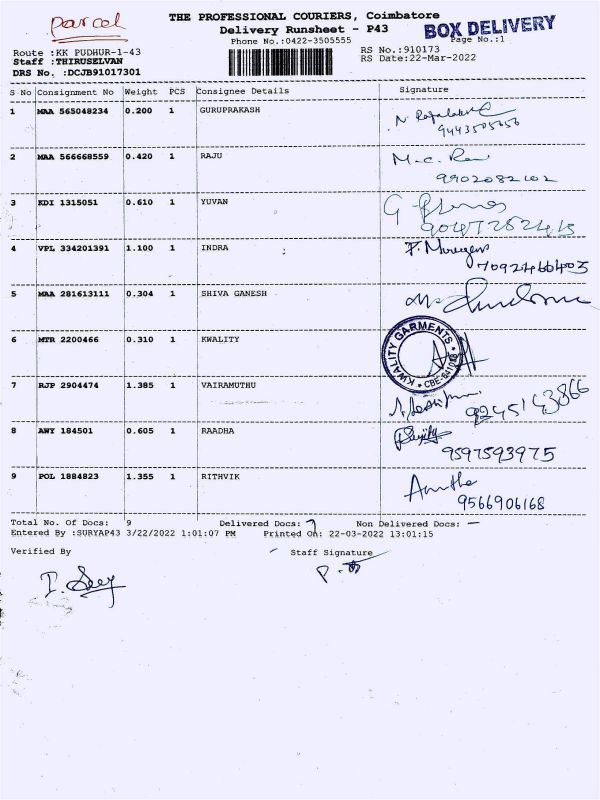 parcel
THE PROFESSIONAL COURIERS, Coimbatore
Delivery Runsheet - P43
BOX DELIVERY
Phone No.:0422-3505555
Page No.:1
Route :KK PUDHUR-1-43
RS No.:910173
Staff :THIRUSELVAN
RS Date:22-Mar-2022
DRS No. :DCJB91017301
S No Consignment No Weight PCS Consignee Details Signature
1 MAA 565048234 0.200 1 GURUPRAKASH
9443505656
2 MAA 566668559 0.420 1 RAJU
9902082102
3 KDI 1315051 0.610 1 YUVAN
4 VPL 334201391 1.100 1 INDRA
5 MAA 281613111 0.304 1 SHIVA GANESH
6 MTR 2200466 0.310 1 KWALITY
KWALITY GARMENTS
7 RJP 2904474 1.385 1 VAIRAMUTHU
9245143866
8 AWY 184501 0.605 1 RAADHA
9597593975
9 POL 1884823 1.355 1 RITHVIK
9566906168
Total No. Of Docs: 9 Delivered Docs: Non Delivered Docs: —
Entered By :SURYAP43 3/22/2022 1:01:07 PM Printed On: 22-03-2022 13:01:15
Verified By Staff Signature